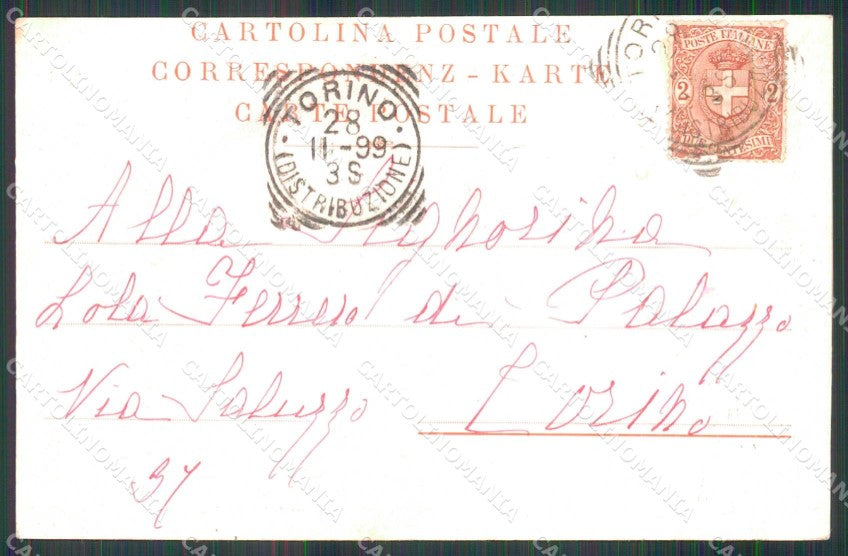 CARTOLINA POSTALE
CORRESPONDENZ-KARTE
CARTE POSTALE
TORINO
28
11-99
3S
(DISTRIBUZIONE)
TOR
POSTE ITALIANE
2 2
Alla Sighorina
Lola Ferrero di Palazzo
Via Saluzzo Torino
37
CARTOLINOMANIA